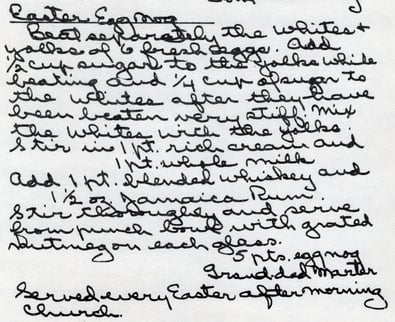 Easter Eggnog
Beat separately the whites &
yolks of 6 fresh eggs. Add
½ cup sugar to the yolks while
beating and ¼ cup sugar to
the whites after they have
been beaten very stiff. Mix
the whites with the yolks.
Stir in 1 pt. rich cream and
1 pt. whole milk
Add 1 pt. blended whiskey and
1½ oz. Jamaica Rum.
Stir thoroughly and serve
from punch bowl with grated
nutmeg on each glass.
5 pts. eggnog
Granddad
Served every Easter after morning
Church.